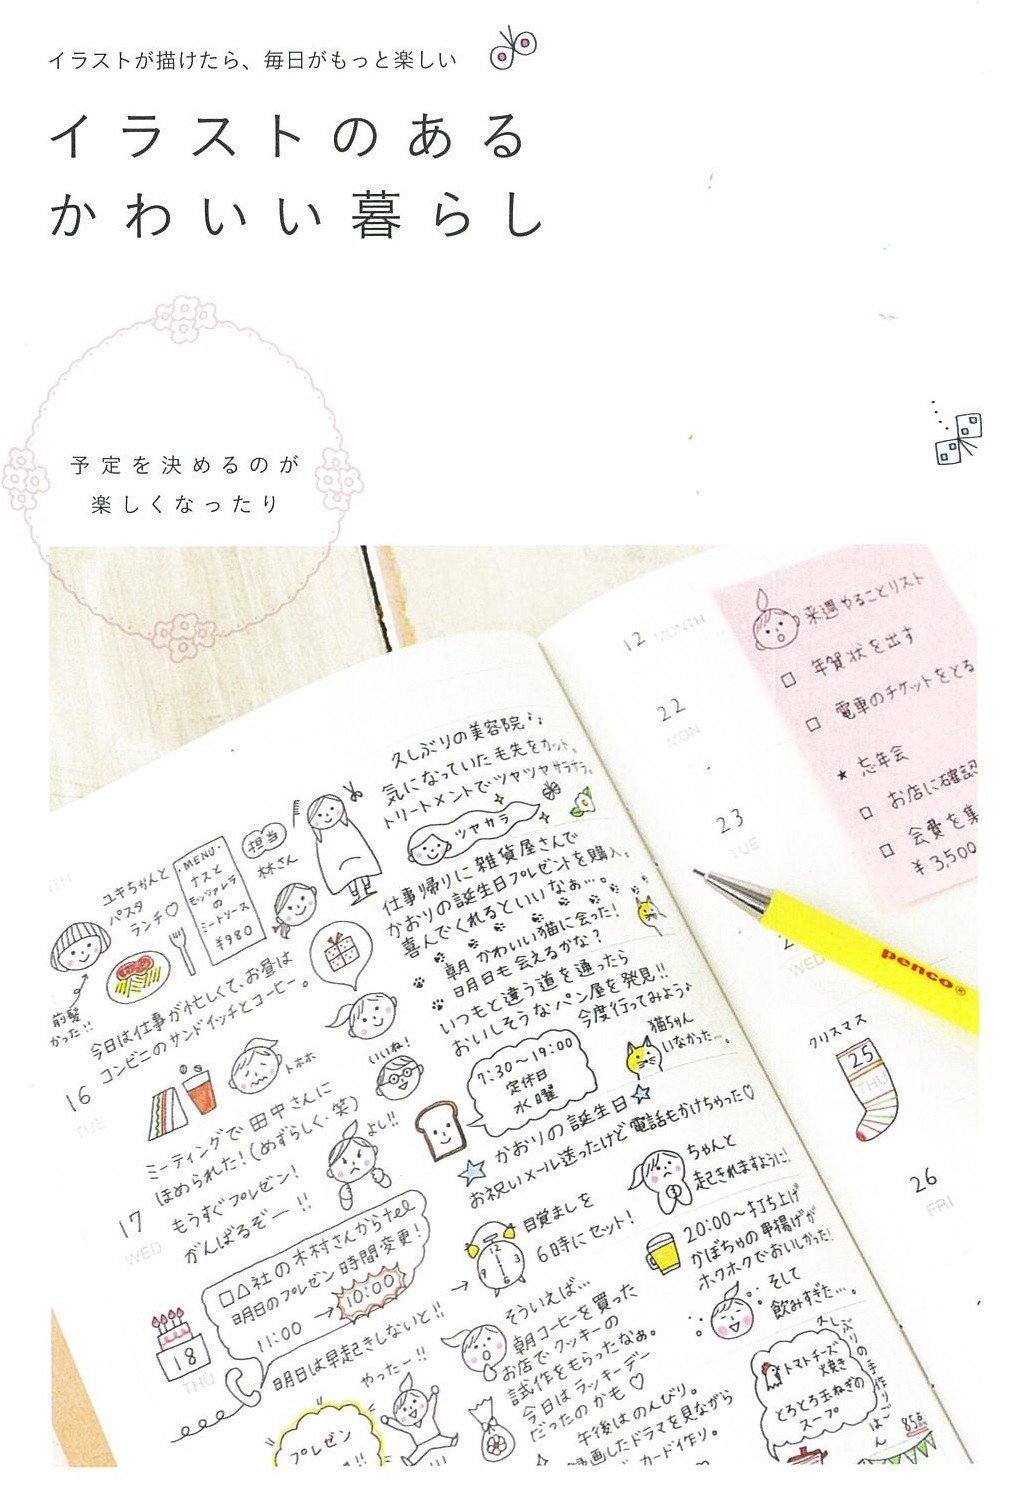 イラストが描けたら、毎日がもっと楽しい
イラストのある
かわいい暮らし
予定を決めるのが
楽しくなったり
ユキちゃんと
パスタ
ランチ♡
・MENU・
ナスと
モッツァレラ
の
ミートソース
¥980
担当
林さん
前髪
かった!!
今日は仕事が忙しくて、お昼は
コンビニのサンドイッチとコーヒー。
16
TUE
トホホ
いいね!
ミーティングで田中さんに
ほめられた!(めずらしく・笑)
もうすぐプレゼン!
がんばるぞー!!
よし!!
17
WED
□△社の木村さんからtel
明日のプレゼン時間変更!
11:00 → 10:00
明日は早起きしないと!!
18
THU
やったー!!
プレゼン
久しぶりの美容院
気になっていた毛先をカット。
トリートメントでツヤツヤサラサラ。
ツヤサラ
仕事帰りに雑貨屋さんで
かおりの誕生日プレゼントを購入。
喜んでくれるといいなぁ…。
朝かわいい猫に会った!
明日も会えるかな?
いつもと違う道を通ったら
おいしそうなパン屋を発見!!
今度行ってみよう♪
7:30〜19:00
定休日
水曜
猫ちゃん
いなかった…。
かおりの誕生日☆
お祝いメール送ったけど電話もかけちゃった♡
ちゃんと
起きれますように!
目覚ましを
6時にセット!
20:00〜打ち上げ
かぼちゃの串揚げが
ホクホクでおいしかった!
そして
飲みすぎた…。
そういえば…
朝コーヒーを買った
お店でクッキーの
試作をもらったなぁ。
今日はラッキーデー
だったのかも♡
午後はのんびり。
録画したドラマを見ながら
カード作り。
久しぶりの手作りごはん
トマトチーズ
焼き
とろとろ玉ねぎの
スープ
85点
12 MONTH
22
MON
23
TUE
WED
クリスマス
25
THU
26
FRI
来週やることリスト
□ 年賀状を出す
□ 電車のチケットをとる
★ 忘年会
□ お店に確認
□ 会費を集
¥3,500
penco®